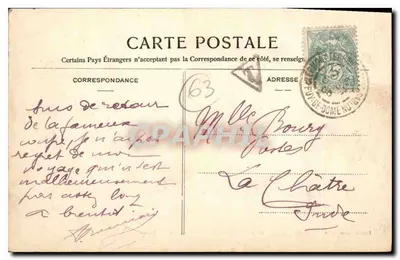 CARTE POSTALE
Certains Pays Étrangers n'acceptant pas la Correspondance de ce côté, se renseigner
CORRESPONDANCE
ADRESSE
63
T
suis de retour
de la fameuse
je n'ai pas
regret de mon
voyage qui n'est
malheureusement
pas assez long
a bientot
Mlle Boury
Postes
La Châtre
Indre
PUY-DE-DOME